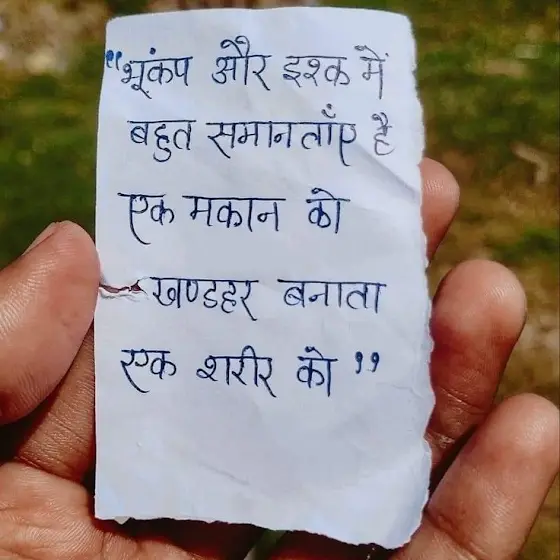 “भूकंप और इश्क में
बहुत समानताँए है
एक मकान को
खण्डहर बनाता
एक शरीर को ”